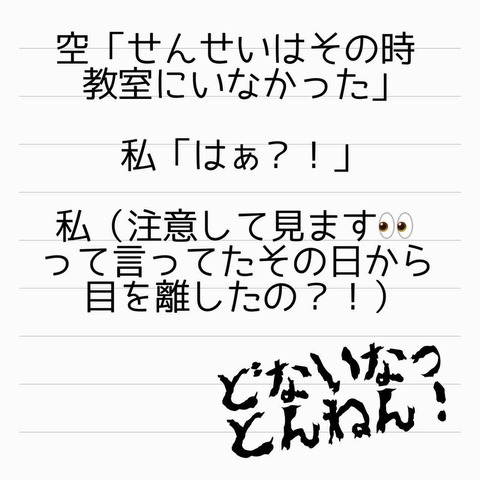 空「せんせいはその時
教室にいなかった」
私「はぁ？！」
私（注意して見ます👀
って言ってたその日から
目を離したの？！）
どないなっ
とんねん！